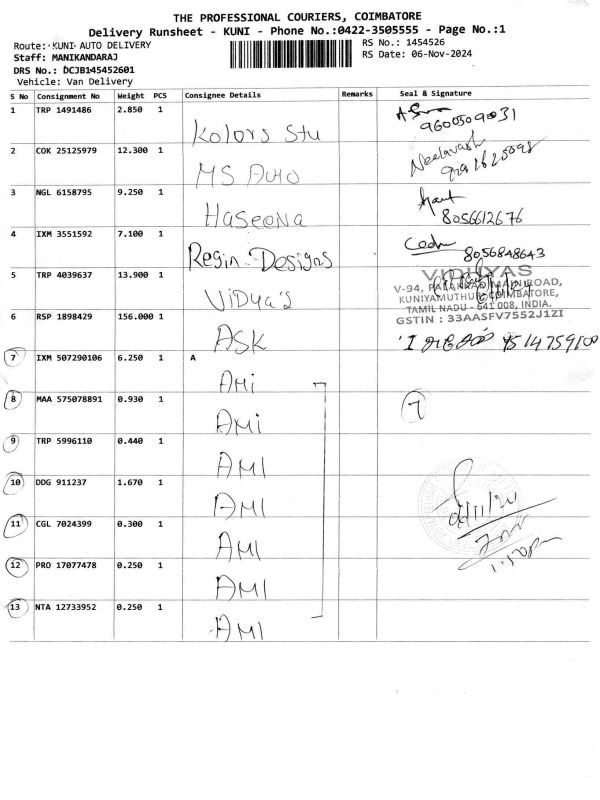 THE PROFESSIONAL COURIERS, COIMBATORE
Delivery Runsheet - KUNI - Phone No.:0422-3505555 - Page No.:1
Route: KUNI AUTO DELIVERY
RS No.: 1454526
Staff: MANIKANDARAJ
RS Date: 06-Nov-2024
DRS No.: DCJB145452601
Vehicle: Van Delivery
S No Consignment No Weight PCS Consignee Details Remarks Seal & Signature
1 TRP 1491486 2.850 1 Kolors Stu
9600509031
2 COK 25125979 12.300 1 MS Auto
Neelavash
3 NGL 6158795 9.250 1 Haseena
8056612676
4 IXM 3551592 7.100 1 Regin Designs
8056848643
5 TRP 4039637 13.900 1 Vidya's
VIDHYAS
V-94, PALAKKAD MAIN ROAD,
KUNIYAMUTHUR, COIMBATORE,
TAMIL NADU - 641 008, INDIA.
GSTIN : 33AASFV7552J1ZI
6 RSP 1898429 156.000 1 ASK
7 IXM 507290106 6.250 1 A AMI
8 MAA 575078891 0.930 1 AMI 7
9 TRP 5996110 0.440 1 AMI
10 DDG 911237 1.670 1 AMI
11 CGL 7024399 0.300 1 AMI
12 PRO 17077478 0.250 1 AMI
13 NTA 12733952 0.250 1 AMI